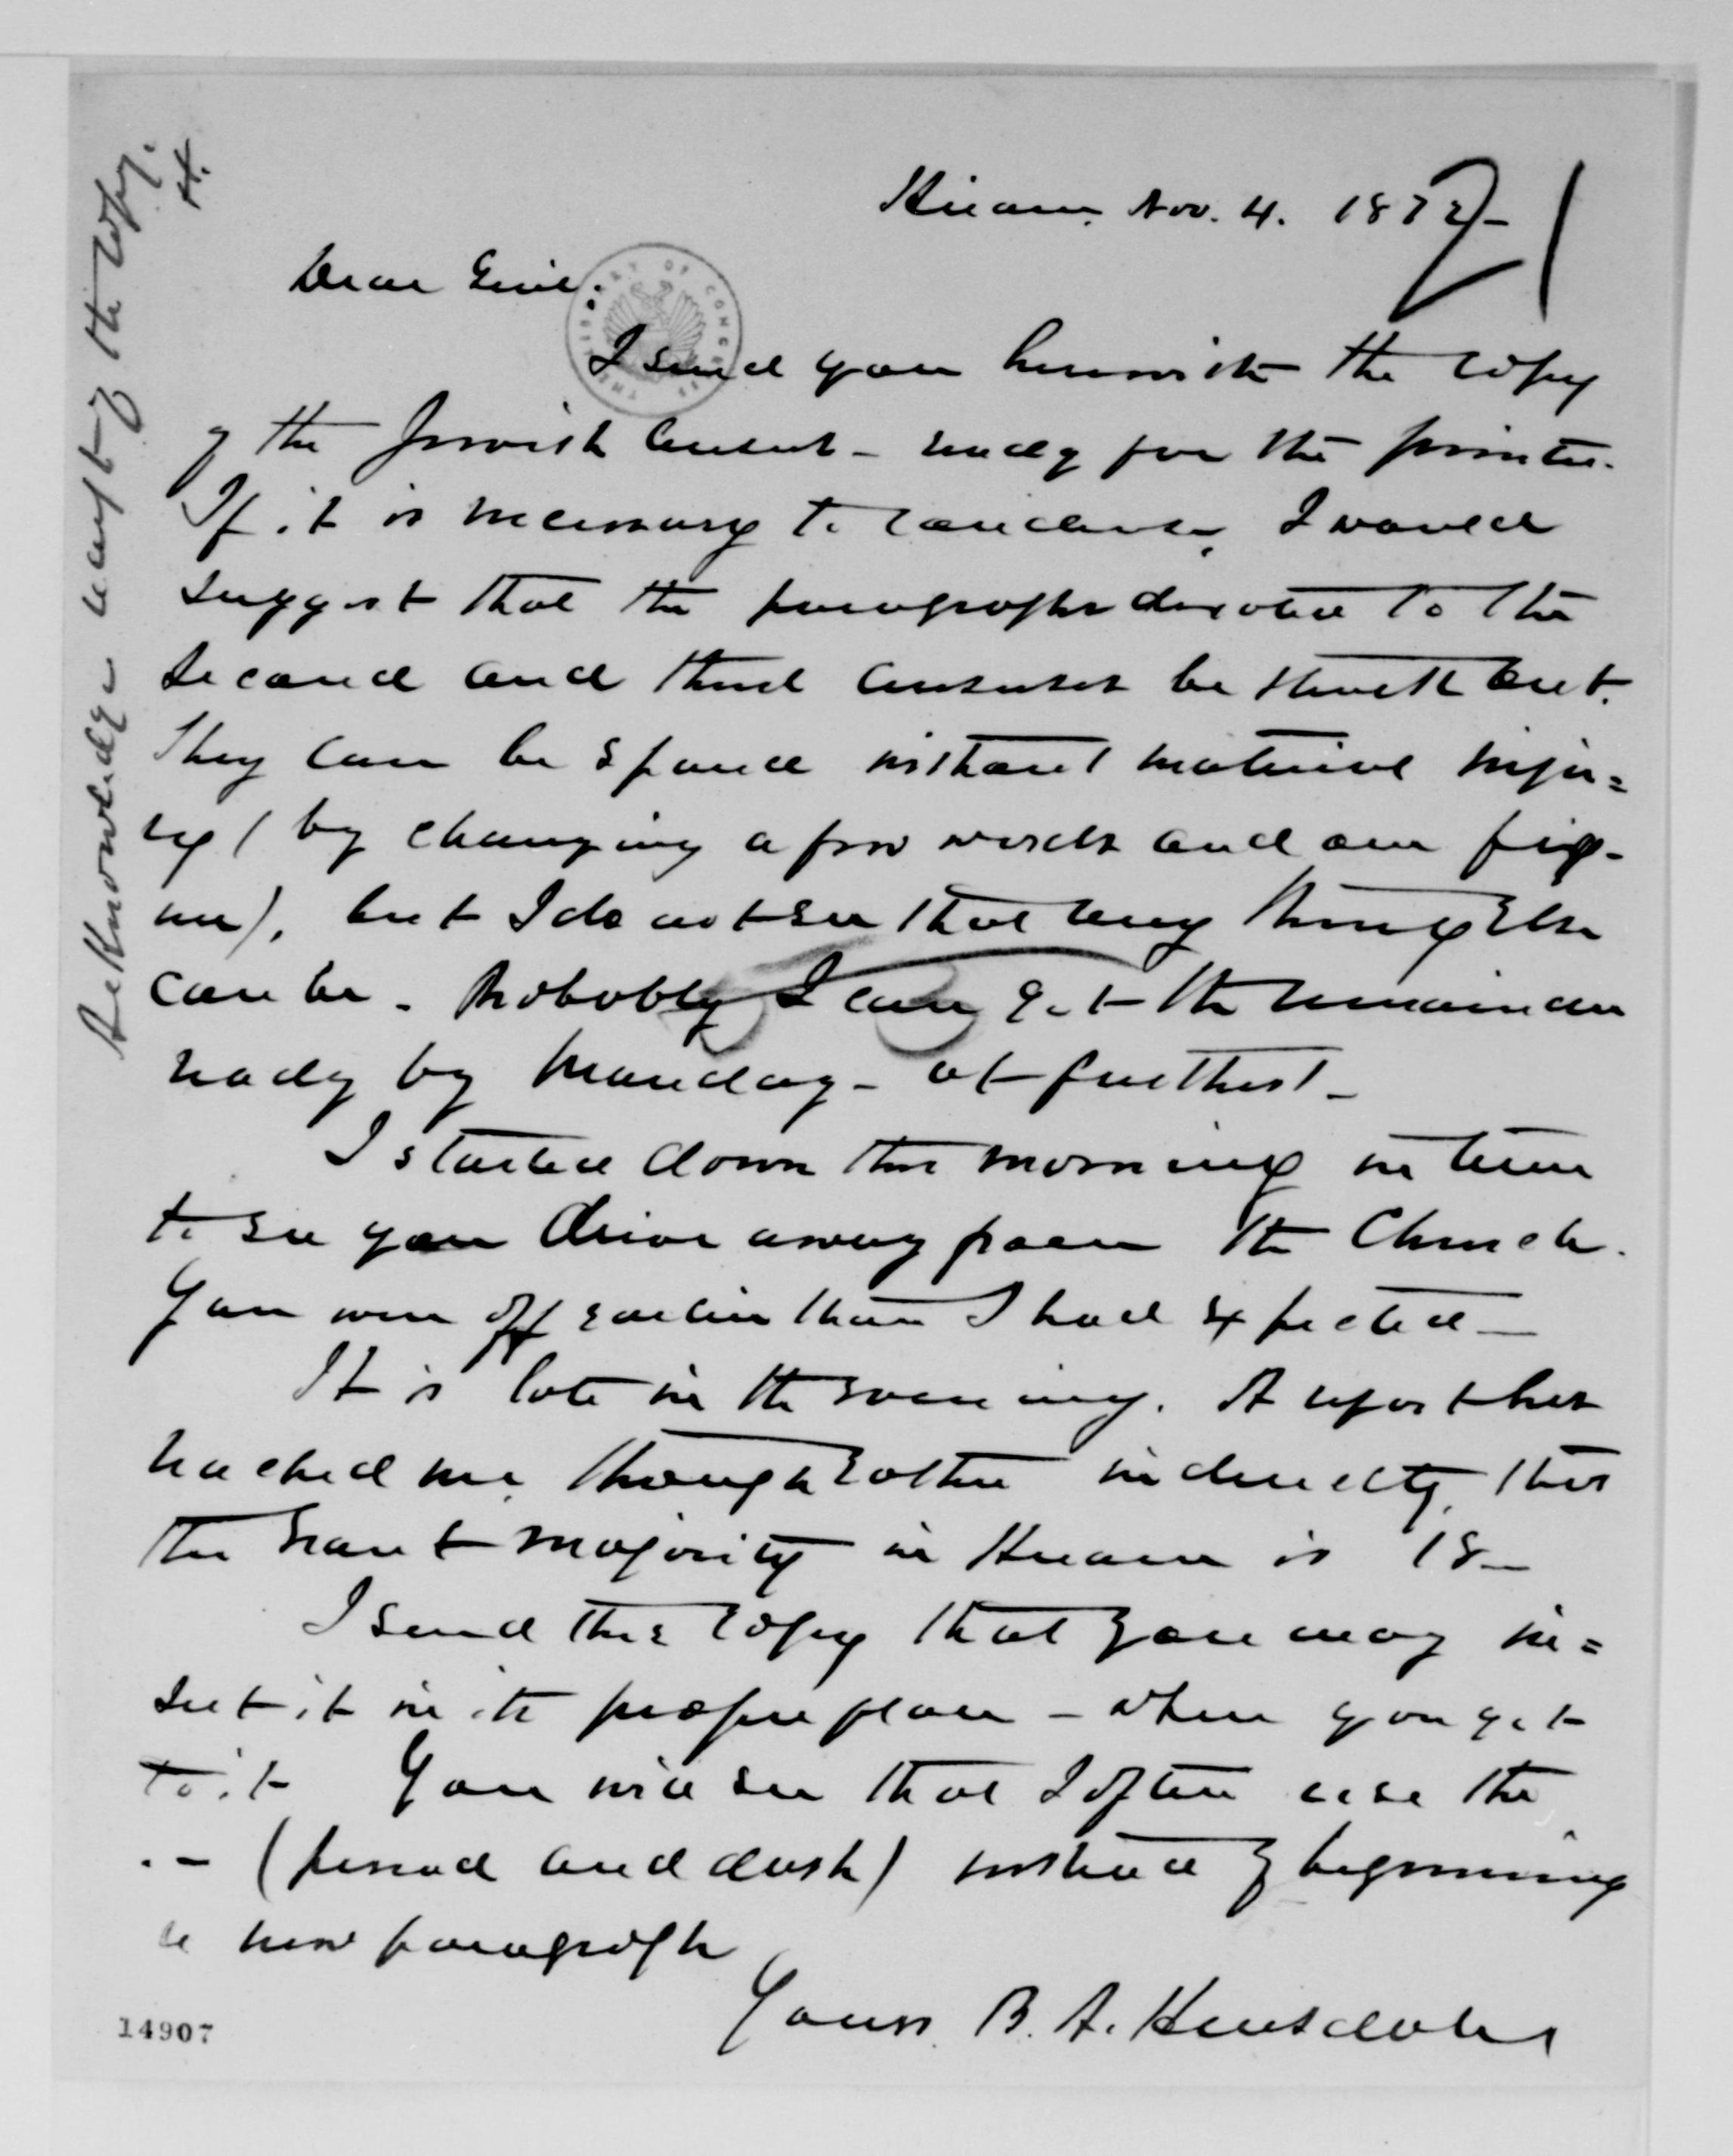 Hiram, Nov. 4. 1872-
21
Dear Genl.
I send you herewith the copy
of the Jewish Census - ready for the printer.
If it is necessary to condense, I would
suggest that the paragraphs devoted to the
second and third censuses be struck out.
They can be spared without material inju=
ry (by changing a few words and one fig-
ure), but I do not see that any thing else
can be. Probably I can get the remainder
ready by Monday - at furthest -
I started down this morning in time
to see you drive away from the Church.
You were off earlier than I had expected -
It is late in the evening. A report has
reached me, though rather indirectly, that
the Grant majority in Hiram is 18 -
I send this copy that you may in=
sert it in its proper place - when you get
to it You will see that I often use the
. - (period and dash) instead of beginning
a new paragraph
Yours B. A. Hinsdale
Acknowledge receipt of the copy.
H.
THE LIBRARY OF CONGRESS
14907